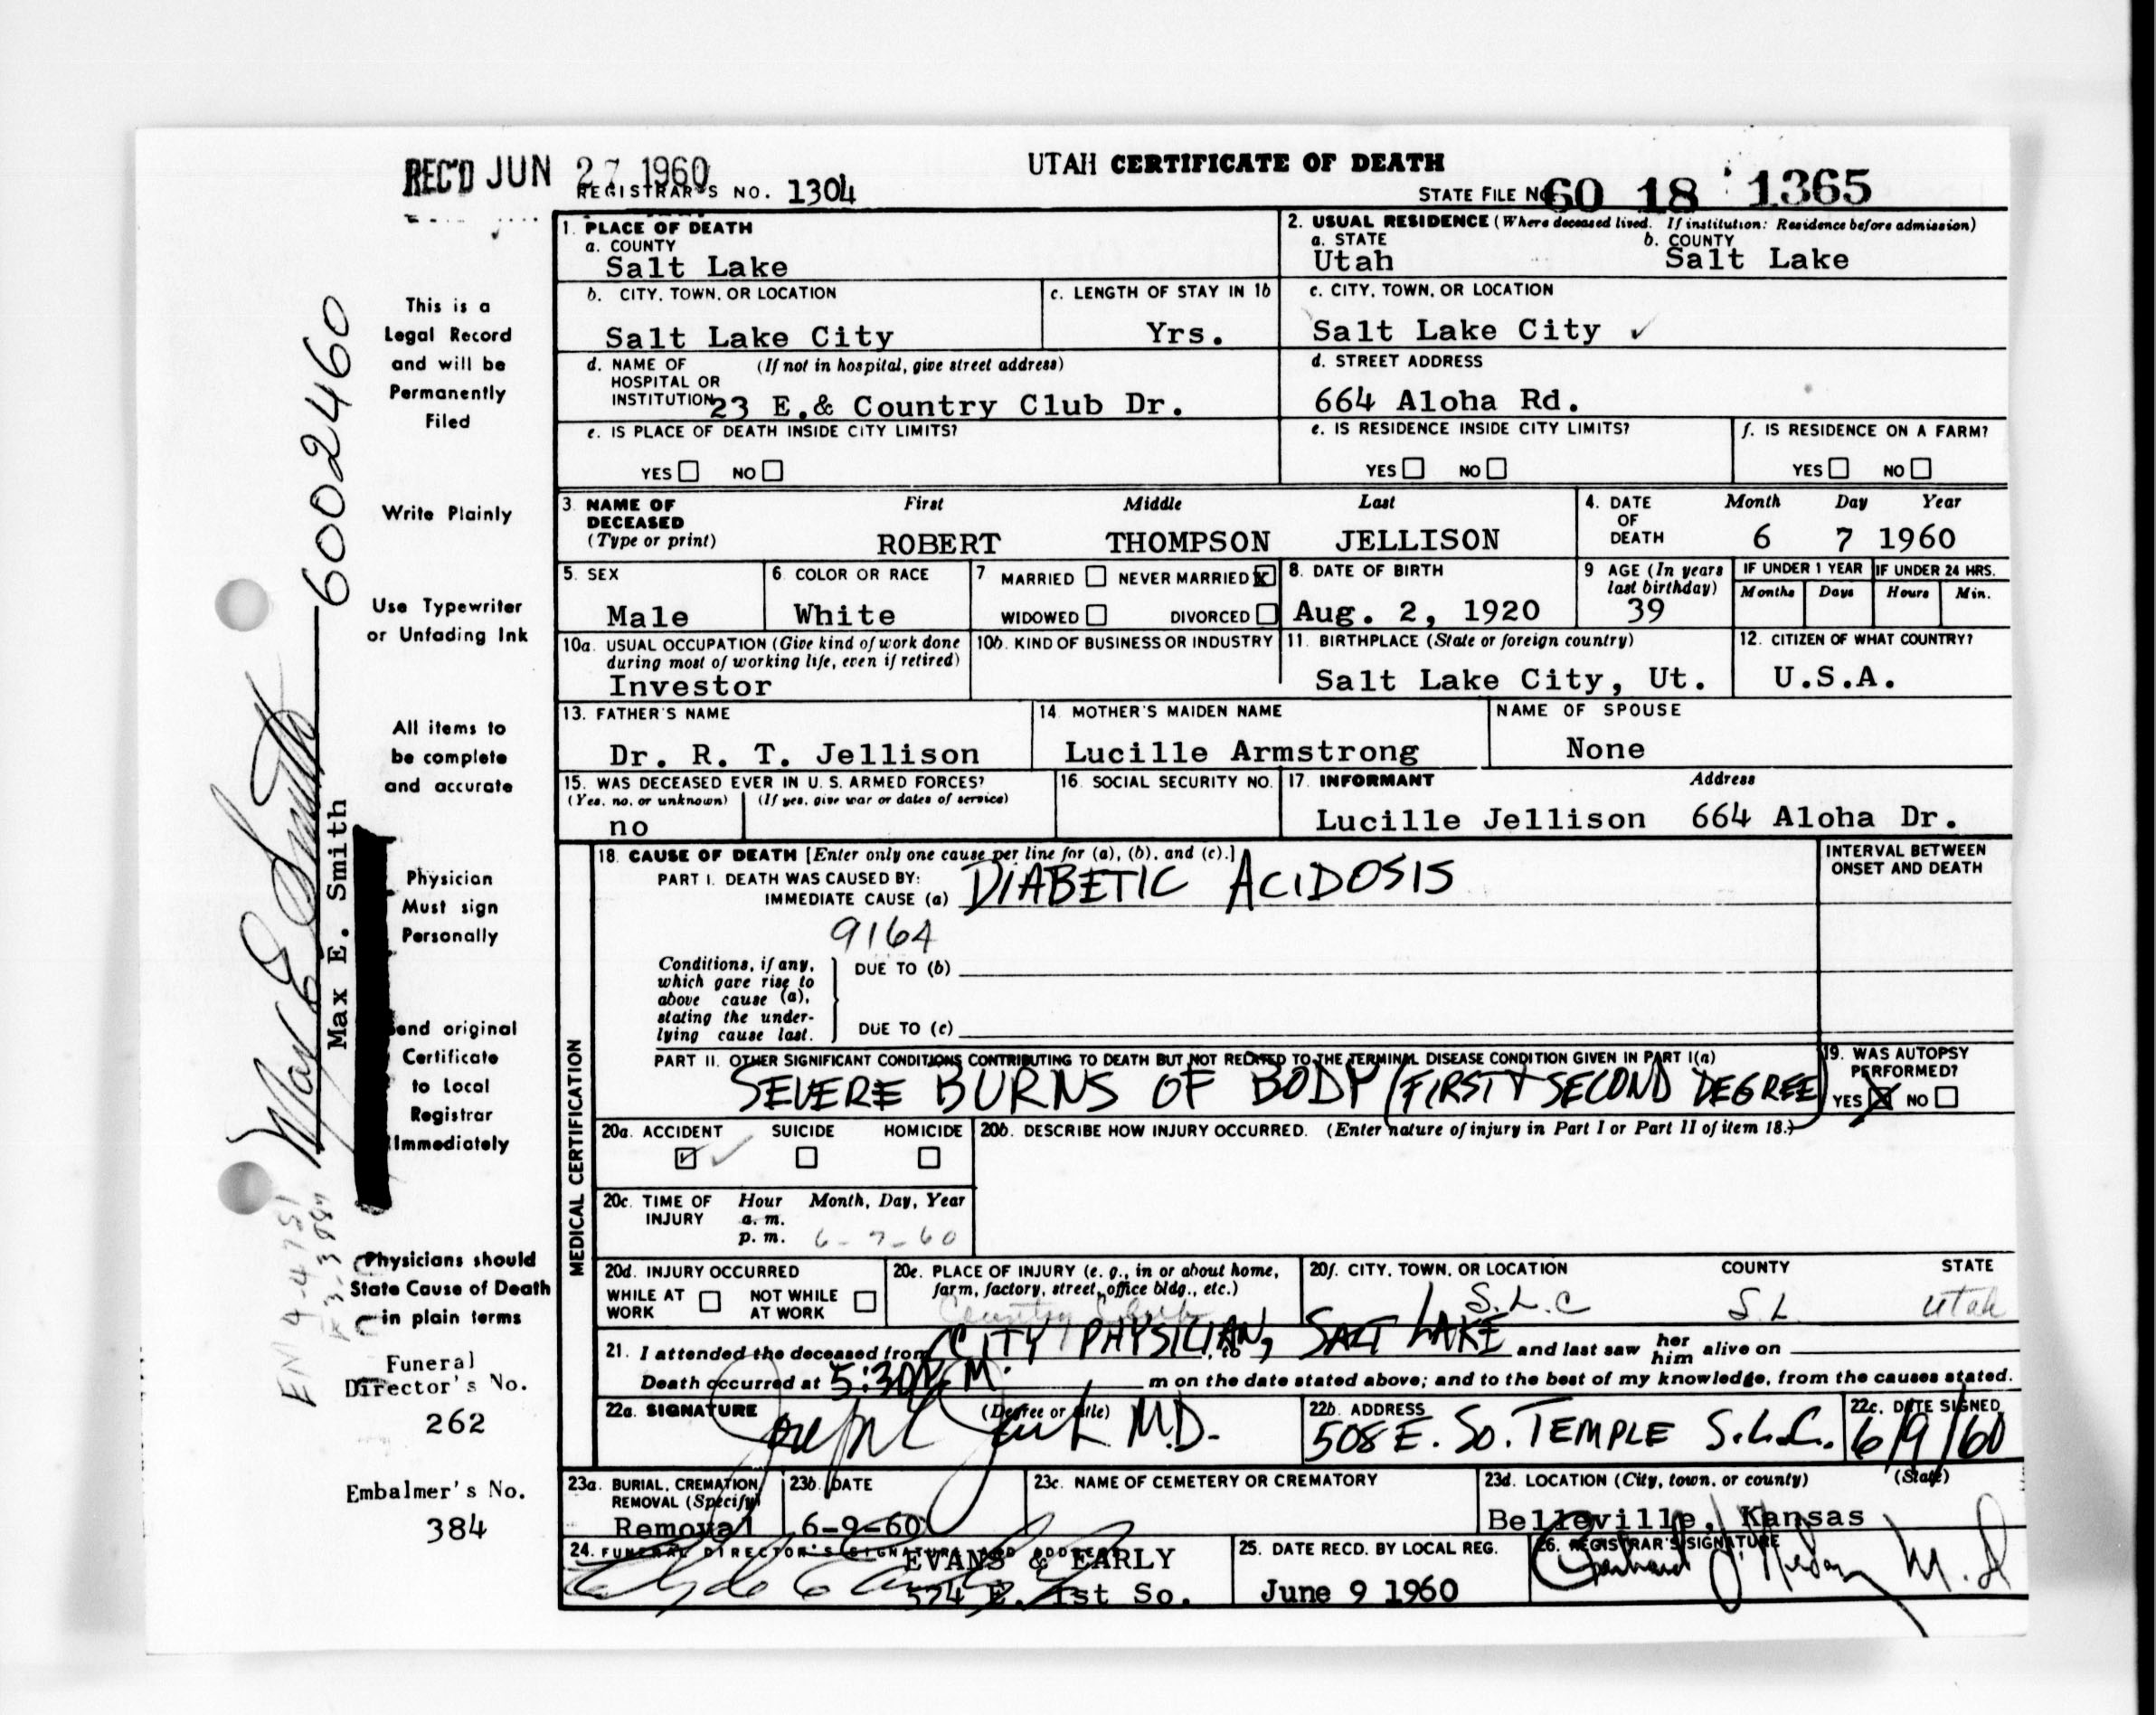 REC'D JUN 27 1960
REGISTRAR'S NO. 1304
UTAH CERTIFICATE OF DEATH
STATE FILE NO. 60 18 1365
1. PLACE OF DEATH
a. COUNTY
Salt Lake
2. USUAL RESIDENCE (Where deceased lived. If institution: Residence before admission)
a. STATE
Utah
b. COUNTY
Salt Lake
b. CITY, TOWN, OR LOCATION
Salt Lake City
c. LENGTH OF STAY IN 1b
Yrs.
c. CITY, TOWN, OR LOCATION
Salt Lake City ✓
d. NAME OF HOSPITAL OR INSTITUTION (If not in hospital, give street address)
23 E.& Country Club Dr.
d. STREET ADDRESS
664 Aloha Rd.
e. IS PLACE OF DEATH INSIDE CITY LIMITS?
YES NO
e. IS RESIDENCE INSIDE CITY LIMITS?
YES NO
f. IS RESIDENCE ON A FARM?
YES NO
3. NAME OF DECEASED (Type or print)
First Middle Last
ROBERT THOMPSON JELLISON
4. DATE OF DEATH
Month Day Year
6 7 1960
5. SEX
Male
6. COLOR OR RACE
White
7 MARRIED NEVER MARRIED X
WIDOWED DIVORCED
8. DATE OF BIRTH
Aug. 2, 1920
9 AGE (In years last birthday)
39
IF UNDER 1 YEAR
Months Days
IF UNDER 24 HRS.
Hours Min.
10a. USUAL OCCUPATION (Give kind of work done during most of working life, even if retired)
Investor
10b. KIND OF BUSINESS OR INDUSTRY
11. BIRTHPLACE (State or foreign country)
Salt Lake City, Ut.
12. CITIZEN OF WHAT COUNTRY?
U.S.A.
13. FATHER'S NAME
Dr. R. T. Jellison
14. MOTHER'S MAIDEN NAME
Lucille Armstrong
NAME OF SPOUSE
None
15. WAS DECEASED EVER IN U. S. ARMED FORCES?
(Yes, no, or unknown) (If yes, give war or dates of service)
no
16. SOCIAL SECURITY NO.
17. INFORMANT Address
Lucille Jellison 664 Aloha Dr.
MEDICAL CERTIFICATION
18. CAUSE OF DEATH [Enter only one cause per line for (a), (b), and (c).]
PART I. DEATH WAS CAUSED BY:
IMMEDIATE CAUSE (a) DIABETIC ACIDOSIS
INTERVAL BETWEEN ONSET AND DEATH
916A
Conditions, if any, which gave rise to above cause (a), stating the underlying cause last.
DUE TO (b)
DUE TO (c)
PART II. OTHER SIGNIFICANT CONDITIONS CONTRIBUTING TO DEATH BUT NOT RELATED TO THE TERMINAL DISEASE CONDITION GIVEN IN PART I(a)
SEVERE BURNS OF BODY (FIRST & SECOND DEGREE)
19. WAS AUTOPSY PERFORMED?
YES X NO
20a. ACCIDENT SUICIDE HOMICIDE
✓
20b. DESCRIBE HOW INJURY OCCURRED. (Enter nature of injury in Part I or Part II of item 18.)
20c. TIME OF INJURY Hour Month, Day, Year
a. m.
p. m. 6-7-60
20d. INJURY OCCURRED
WHILE AT WORK NOT WHILE AT WORK
20e. PLACE OF INJURY (e. g., in or about home, farm, factory, street, office bldg., etc.)
Country Club
20f. CITY, TOWN, OR LOCATION COUNTY STATE
S.L.C S.L. Utah
21. I attended the deceased from CITY PHYSICIAN, to SALT LAKE and last saw her him alive on
Death occurred at 5:30 P.M. m on the date stated above; and to the best of my knowledge, from the causes stated.
22a. SIGNATURE (Degree or title)
Joseph M.D.
22b. ADDRESS
508 E. So. TEMPLE S.L.C.
22c. DATE SIGNED
6/9/60
23a. BURIAL, CREMATION, REMOVAL (Specify)
Removal
23b. DATE
6-9-60
23c. NAME OF CEMETERY OR CREMATORY
23d. LOCATION (City, town, or county) (State)
Belleville, Kansas
24. FUNERAL DIRECTOR'S SIGNATURE AND ADDRESS
EVANS & EARLY
574 E. 1st So.
25. DATE RECD. BY LOCAL REG.
June 9 1960
26. REGISTRAR'S SIGNATURE
M.D
This is a
Legal Record
and will be
Permanently
Filed
Write Plainly
Use Typewriter
or Unfading Ink
All items to
be complete
and accurate
Physician
Must sign
Personally
Send original
Certificate
to Local
Registrar
Immediately
Physicians should
State Cause of Death
in plain terms
Funeral
Director's No.
262
Embalmer's No.
384
6002460
Max E Smith
Max E. Smith